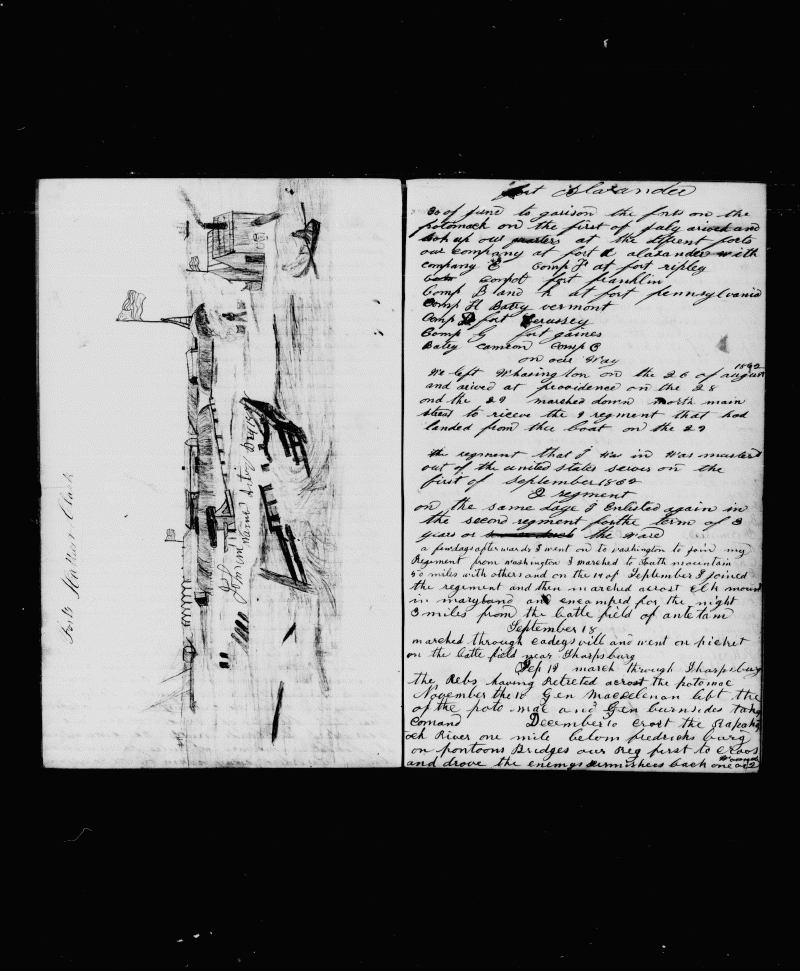 Forts
Clark
fort Alaxander
30 of June to garison the forts on the
potomach on the first of July arived and
took up our quarters at the diferent forts
our company at fort alaxander with
company E Comp F at fort ripley
Comp at fort franklin
Comp B and K at fort pennsylvania
Comp H Batey vermont
Comp D fort
Comp G fort gaines
Batey Cameon Comp C
on our Way
1862
We left Whasington on the 26 of august
and arived at providence on the 28
and the 29 marched down north main
street to riceve the 9 regiment that had
landed from thee boat on the 29
the regiment that I was in was musterd
out of the united states server on the
first of September 1862
2 regiment
on the same daye I Enlisted again in
the second regiment for the term of 3
years or the ware
a few days after wards I went on to washington to join my
Regiment from washington I marched to South mountain
50 miles with others and on the 14 of September I joined
the regiment and then marched across elk mount
in maryland and encamped for the night
3 miles from the batle field of antetam
September 18
marched through eadeysvill and went on picket
on the batle field near Sharpsburg
Sep 19 march through Sharpsburg
the Rebs having Retreted across the potomac
November the 10 Gen Maccelenan left the
of the poto mac and Gen burnsides take
Comand December 10 crost the
och River one mile below fredricks burg
on pontoons Bridges our Reg first to cross
and drove the enemys back one